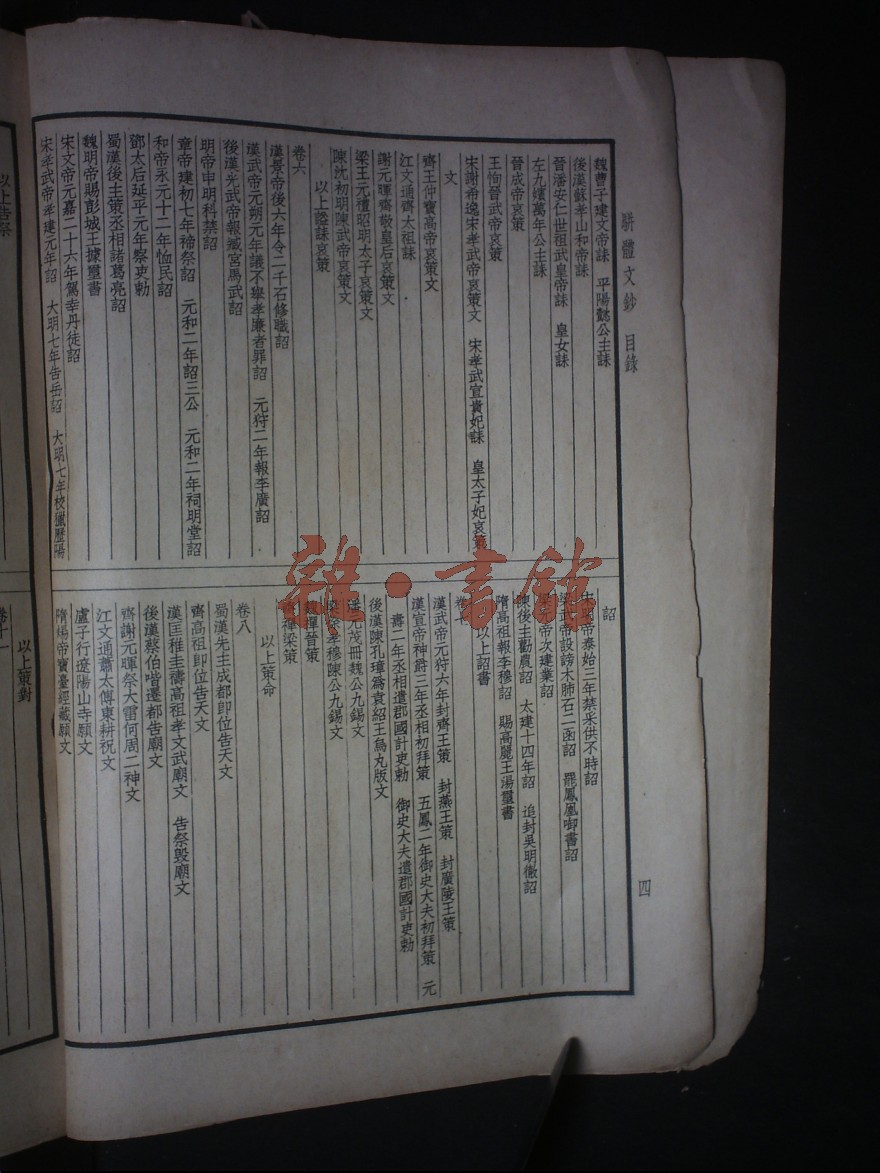 駢體文鈔 目錄
四
魏曹子建文帝誄 平陽懿公主誄
後漢蘇孝山和帝誄
晉潘安仁世祖武皇帝誄 皇女誄
左九嬪萬年公主誄
晉成帝哀策
王恂晉武帝哀策
宋謝希逸宋孝武帝哀策文 宋孝武宣貴妃誄 皇太子妃哀策
文
齊王仲寶高帝哀策文
江文通齊太祖誄
謝元暉齊敬皇后哀策文
梁王元禮昭明太子哀策文
陳沈初明陳武帝哀策文
以上諡誄哀策
卷六
漢景帝後六年令二千石修職詔
漢武帝元朔元年議不舉孝廉者罪詔 元狩二年報李廣詔
後漢光武帝報臧宮馬武詔
明帝申明科禁詔
章帝建初七年禘祭詔 元和二年詔三公 元和二年祠明堂詔
和帝永元十二年恤民詔
鄧太后延平元年祭吏勅
蜀漢後主策丞相諸葛亮詔
魏明帝賜彭城王據璽書
宋文帝元嘉二十六年駕幸丹徒詔
宋孝武帝孝建元年詔 大明七年告岳詔 大明七年校獵歷陽
詔
宋明帝泰始三年禁采供不時詔
梁武帝設謗木肺石二函詔 罷鳳凰啣書詔
帝次建業詔
陳後主勸農詔 太建十四年詔 追封吳明徹詔
隋高祖報李穆詔 賜高麗王湯璽書
以上詔書
卷七
漢武帝元狩六年封齊王策 封燕王策 封廣陵王策
漢宣帝神爵三年丞相初拜策 五鳳二年御史大夫初拜策 元
壽二年丞相遣郡國計吏勅 御史大夫遣郡國計吏勅
後漢陳孔璋爲袁紹王烏丸版文
潘元茂冊魏公九錫文
梁徐孝穆陳公九錫文
魏禪晉策
齊禪梁策
以上策命
卷八
蜀漢先主成都即位告天文
齊高祖即位告天文
漢匡稚圭禱高祖孝文武廟文 告祭毀廟文
後漢蔡伯喈遷都告廟文
齊謝元暉祭大雷何周二神文
江文通蕭太傅東耕祝文
盧子行遼陽山寺願文
隋煬帝寶臺經藏願文
以上告祭
以上策對
卷十一
雜·書館